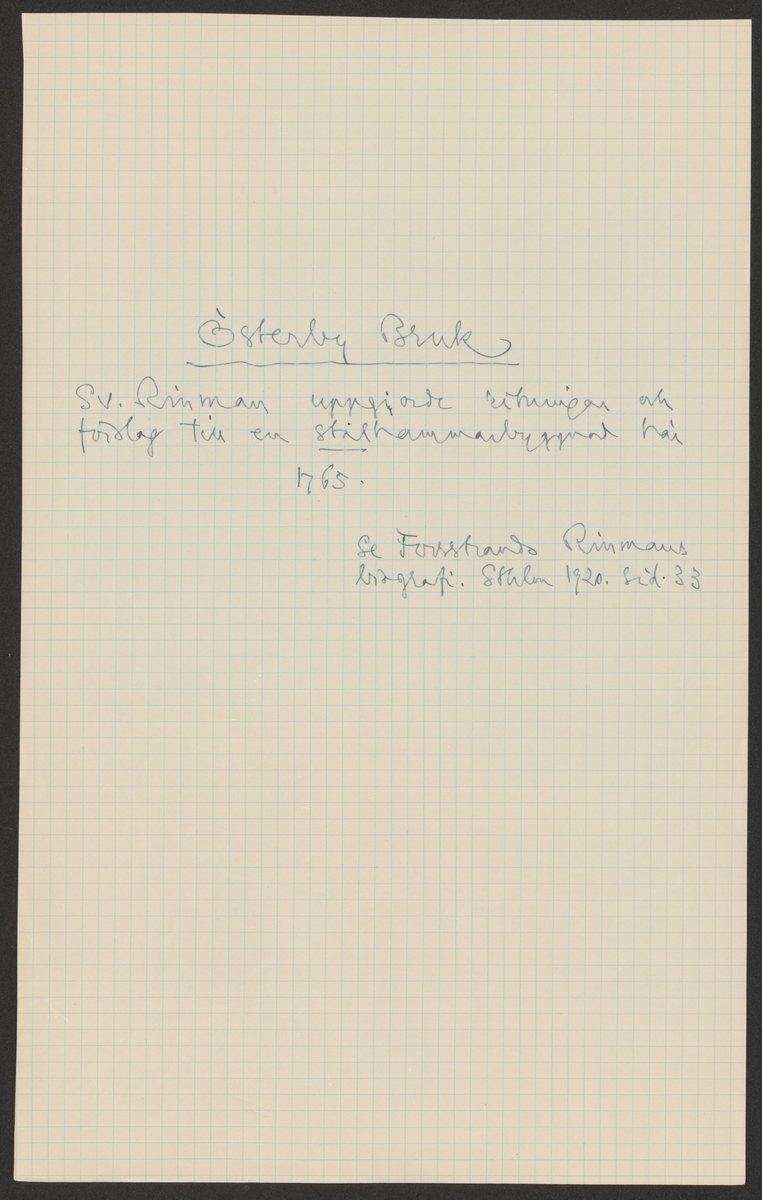 Österby Bruk
Sv. Rinman uppgjorde ritningar och
förslag till en stålhammarbyggnad här
1765.
Se Forsstrands Rinmans
biografi. Sthlm 1920. Sid. 33